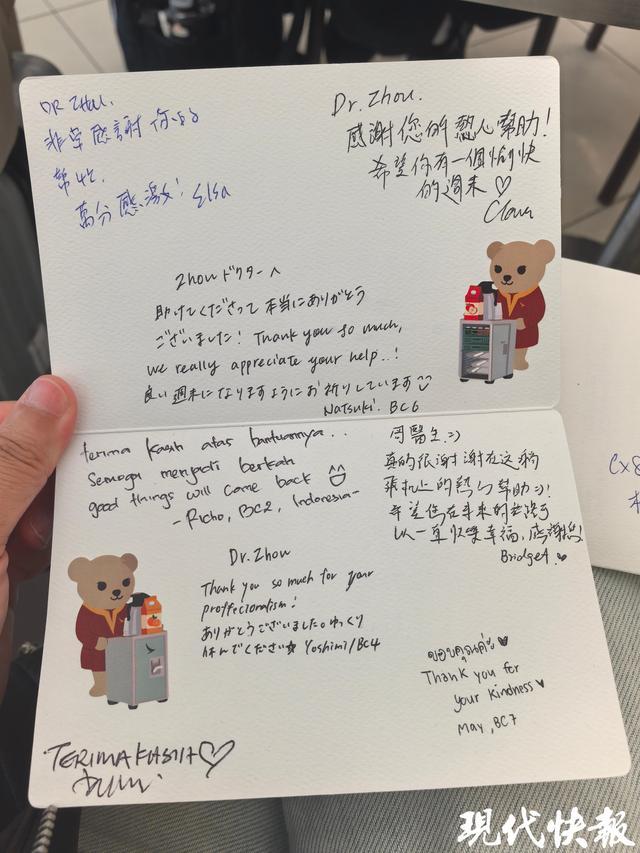 DR ZHOU.
非常感謝你的
幫忙.
萬分感激! Elsa
Dr. Zhou.
感謝您的熱心幫助!
希望你有一個愉快
的週末♡
Zhou ドクターへ
助けてくださって本当にありがとう
ございました! Thank you so much,
we really appreciate your help..!
良い週末になりますようにお祈りしています
Natsuki. BC6
terima kasih atas bantuannya..
Semoga menjadi berkah
good things will come back
- Richo, BC2, Indonesia-
周醫生:)
真的很謝謝在这
飛机上的熱心幫助:)!
希望您在未來的
以一直快樂幸福,感謝您!
Bridget.♥
Dr. Zhou
Thank you so much for your
proffecionalism!
ありがとうございました。ゆっくり
休んでください☆ Yoshimi/BC4
ขอบคุณค่ะ♥
Thank you for
your kindness♥
May, BC7
TERIMA KASIH♡
cx8
现代快報